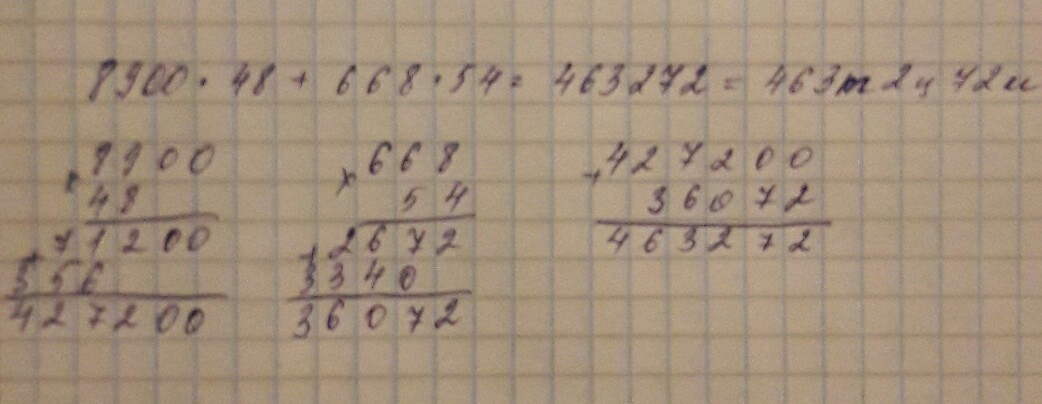 8900 · 48 + 668 · 54 = 463272 = 463т 2ц 72
× 8900
48
+ 71200
356
427200
× 668
54
+ 2672
3340
36072
+ 427200
36072
463272